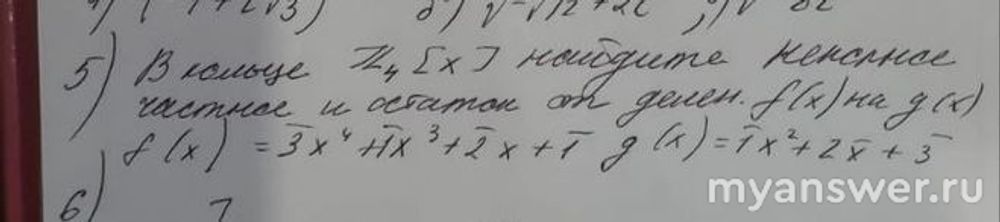 а) (-1+2√3) б) √-√12+2i
5) В кольце ℤ₄[x] найдите неполное
частное и остаток от делен. f(x) на g(x)
f(x) = 3̄x⁴+1̄x³+2̄x+1̄ g(x)=1̄x²+2x̄+3̄
6)
myanswer.ru